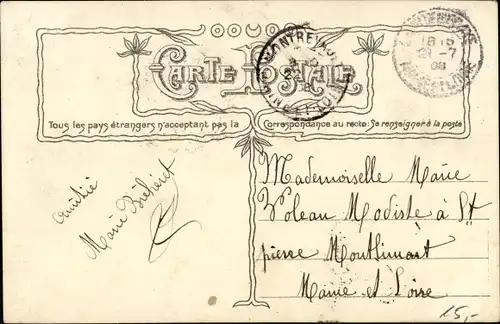 CARTE POSTALE
Tous les pays étrangers n'acceptant pas la Correspondance au recto: Se renseigner à la poste
18 15
21 -7
08
MAINE ET LOIRE
Amitié
Marie
Mademoiselle Marie
Voleau Modiste à St
pierre Montlimart
Maine et Loire
15,-